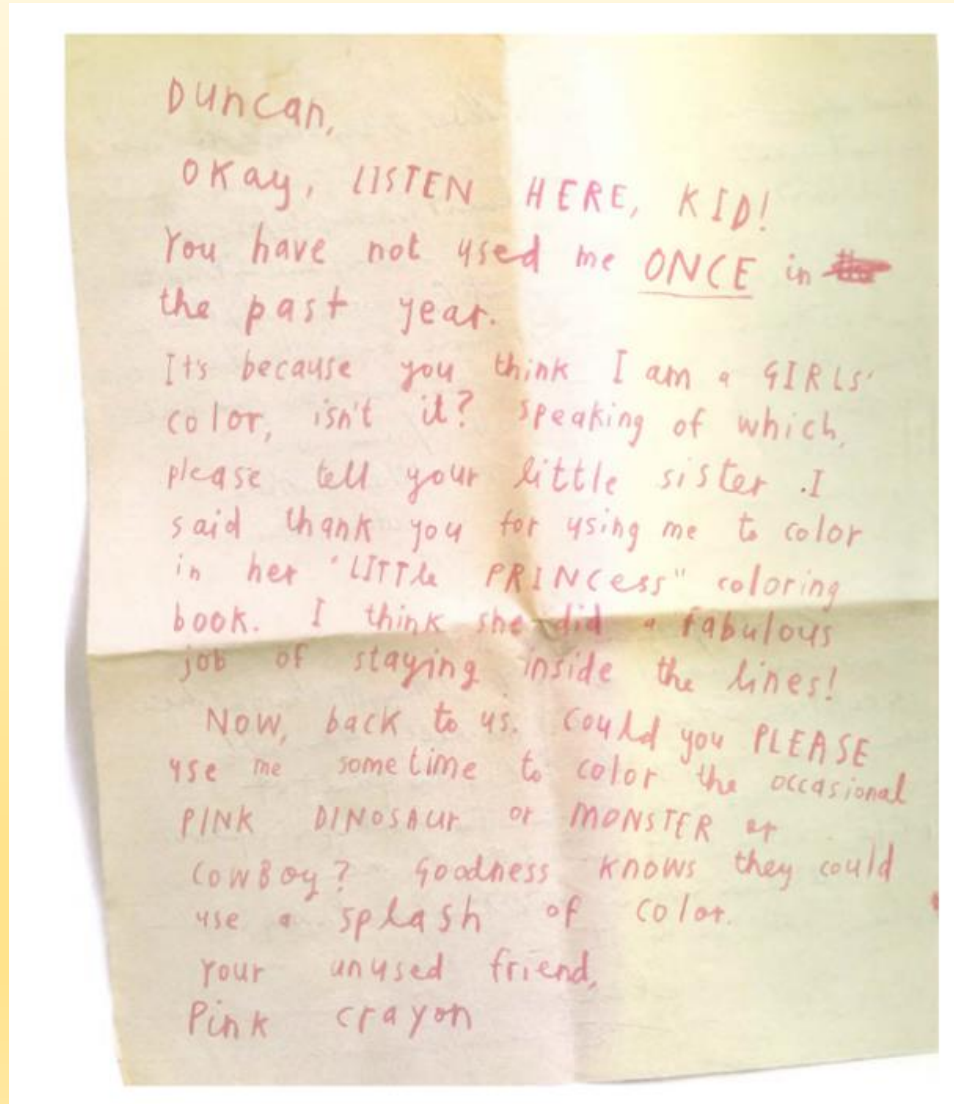 Duncan,
Okay, LISTEN HERE, KID!
You have not used me ONCE in
the past year.
It's because you think I am a GIRLS'
color, isn't it? speaking of which,
please tell your little sister I
said thank you for using me to color
in her "LITTle PRINCess" coloring
book. I think she did a fabulous
job of staying inside the lines!
Now, back to us. Could you PLEASE
use me sometime to color the occasional
PINK DINOSAUr or MONSTER or
COWBoy? Goodness knows they could
use a splash of color.
Your unused friend,
Pink crayon